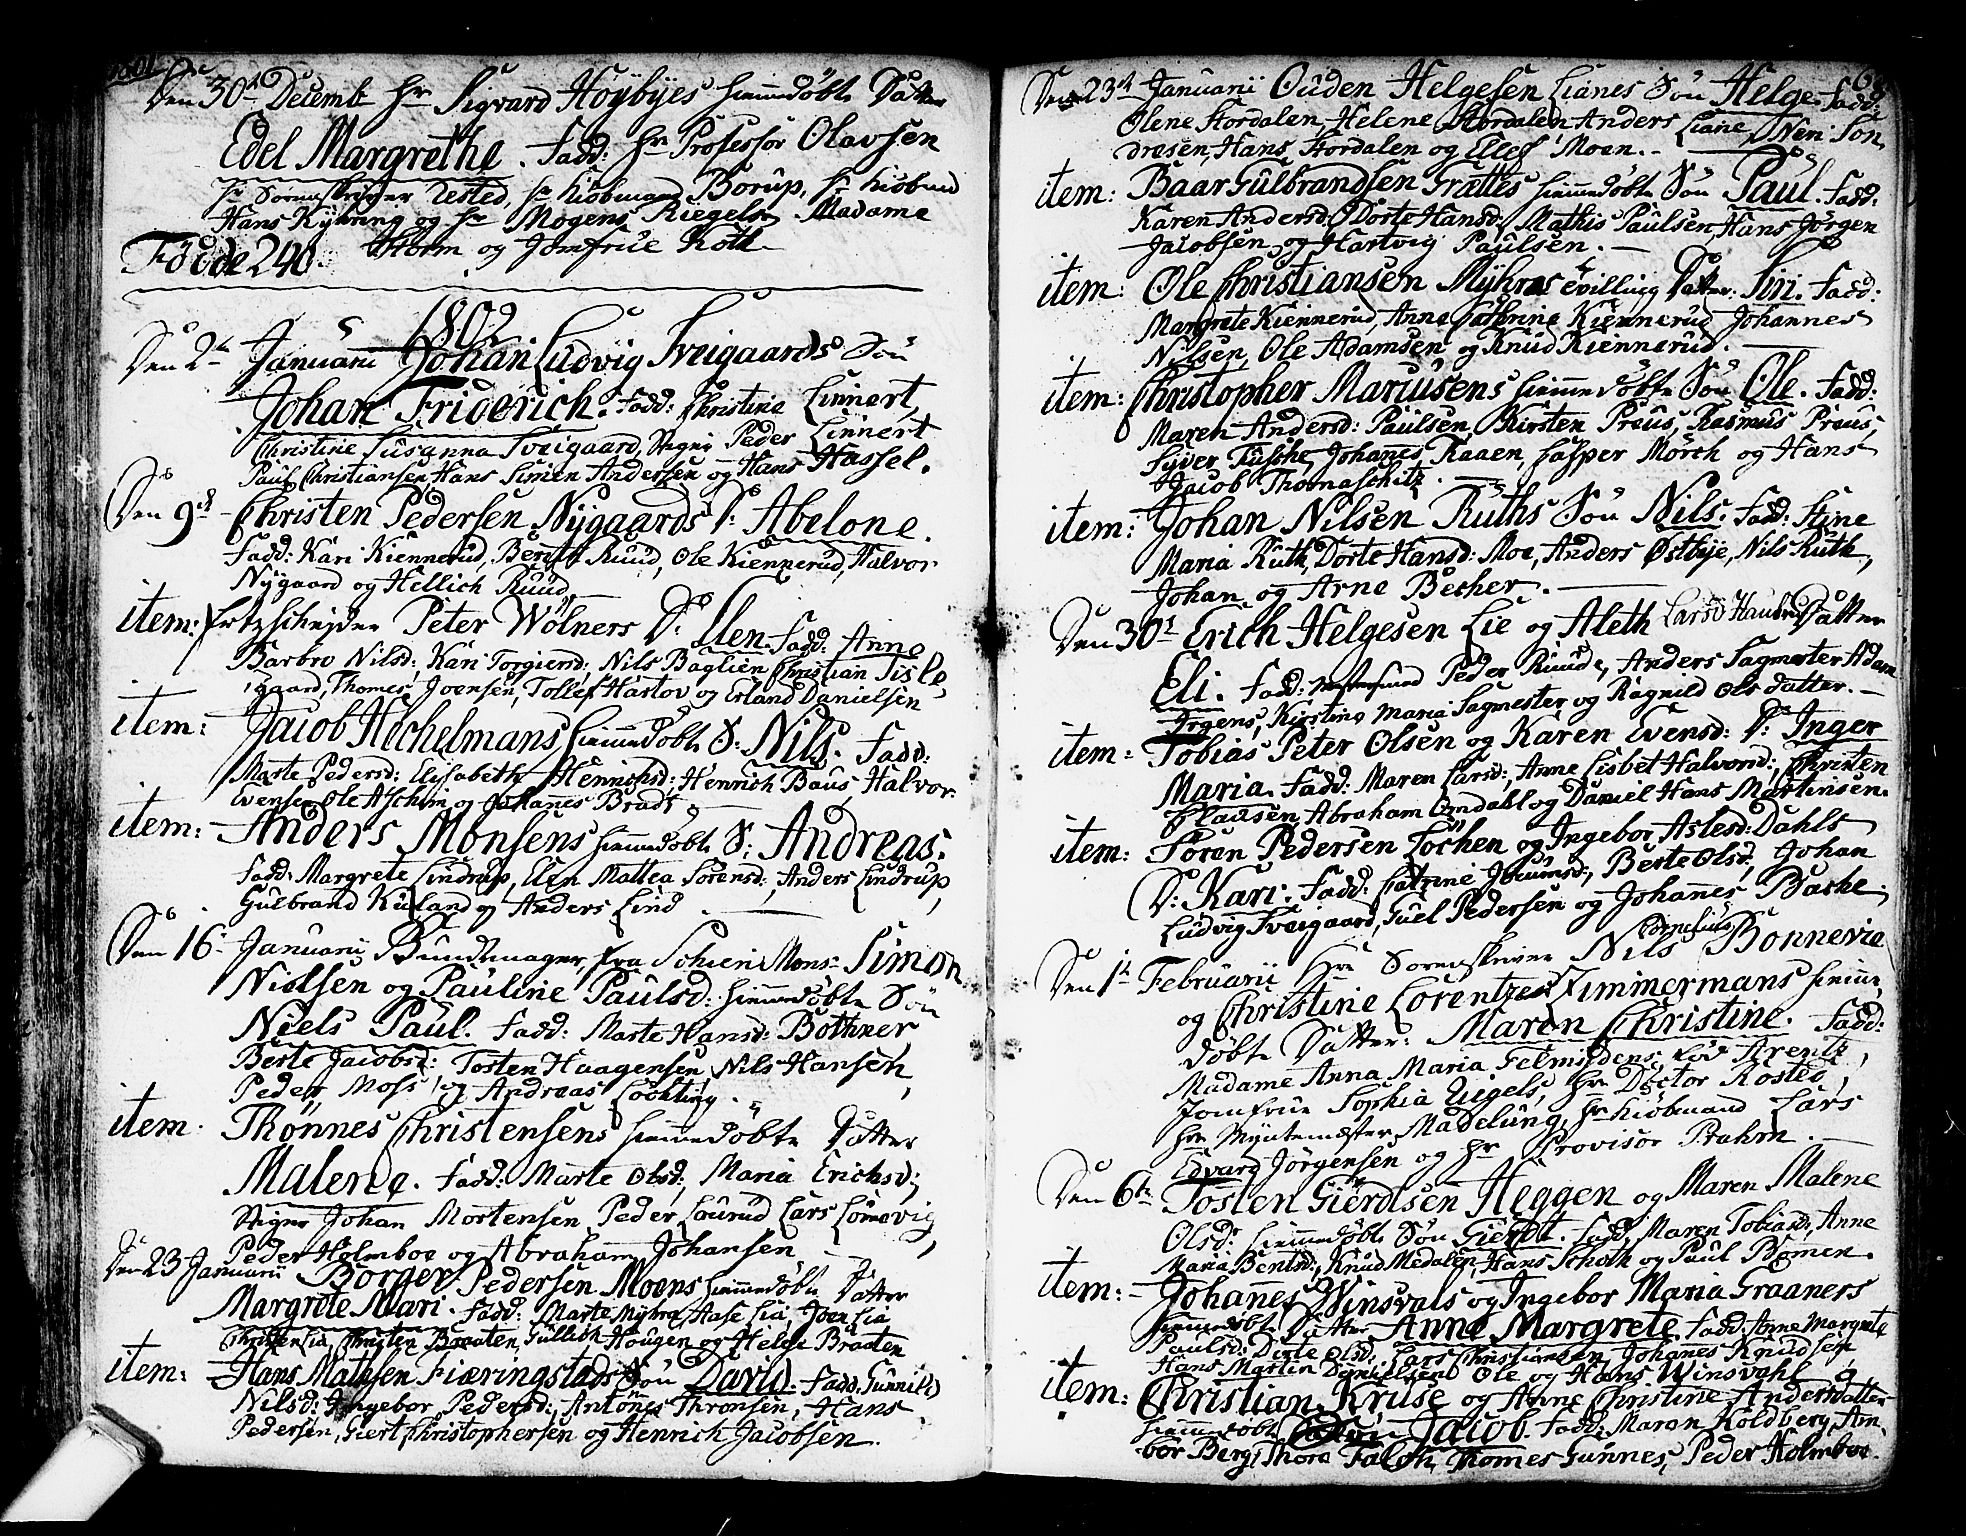 1801
Den 30te Decemb Hr Sigvard Höybyes hiemedöbte Datter
Edel Margrethe. Fadd: Hr Professor Olavsen
Hr Sorenskriver Tested, Hr Kiöbmand Borup, Hr Kiöbmd
Hans Kyhring og Hr Mogens Riegels. Madame
Storm og Jomfrue Roth
Födde 240.
1802
Den 2de Januarii Johan Ludvig Sveigaards Sön
Johan Friderich. Fadd: Christine Linnert,
Christine Susanna Sveigaard, Sigr Peder Linnert
Paul Christiansen Hans Simen Andersen og Hans Hassel.
Den 9de Christen Pedersen Nygaards D: Abelone.
Fadd: Kari Kiennerud, Berte Ruud, Ole Kiennerud, Halvor
Nygaard og Hellich Ruud
item: Ertzscheider Peter Wölners D: Elen. Fadd: Anne
Barbro Nilsd: Kari Torgiersd: Nils Baglien Christian Tisle,
gaard, Thomes Joensen, Tollef Hastov og Erland Danielsen
item: Jacob Hechelmans hiemedöbte S: Nils. Fadd:
Marte Pedersd: Elisabeth Hennichsd; Henrich Baus Halvor
Evensen Ole Aschim og Johanes Brads
item: Anders Monsens hiemedöbte S; Andreas.
Fadd: Margrete Lindrup, Elen Mattea Sörensd; Anders Lindrup,
Gulbrand Kuland og Anders Lind
Den 16 Januarii Bundtmager fra Schien Mons: Simon
Nielsen og Pauline Paulsd: hiemedöbte Sön
Niels Paul. Fadd: Marte Hansd: Bothner
Berte Jacobsd: Tosten Haagensen Nils Hansen,
Peder Moss, og Andreas Löchting.
item. Thönnes Christensens hiemedöbte Datter
Malene. Fadd: Marte Olsd; Maria Erichsd;
Sigr Johan Mortensen Peder Lourud Lars Lomevig,
Peder Holmboe og Abraham Johansen
Den 23 Januarii Börger Pedersen Moens hiemedöbte Datter
Margrete Mari. Fadd: Marte Myhre, Aase Lia, Joen Lia
Christen Lia, Christen Braaten Gullich Hougen og Helge Braaten
item: Hans Mathsen Fiæringstads Sön David. Fadd. Gunnild
Nilsd: Ingebor Pedersd; Antönes Thronsen, Hans
Pedersen, Giert Christophersen og Henrich Jacobsen.
Den 23de Januarii Ouden Helgesen Lianes Sön Helge. Fadd:
Olene Stordalen, Helene Stordalen Anders Liane, Nen Son
dresen, Hans Stordalen og Ellef Moen.
item: Baar Gulbrandsen Grættes hiemedöbte Sön Paul. Fadd:
Karen Andersd: Dorte Hansd: Mathis Paulsen, Hans Jörgen
Jacobsen og Hartvig Paulsen.
item: Ole Christiansen Myhres tvilling Datter: Siri. Fadd:
Margrete Kiennerud, Anne Cathrine Kiennerud Johannes
Nilsen, Ole Adamsen og Knud Kiennerud.
item: Christopher Mariusens hiemedöbte Sön Ole. Fadd:
Maren Andersd: Paulsen, Kirsten Preus, Rasmus Preus,
Syver Tusche, Johanes Raaen, Casper Mörch og Hans
Jacob Thomaschitz.
item: Johan Nilsen Ruths Sön Nils. Fadd: Stine
Maria Ruth, Dorte Hansd: Moe, Anders Østbye, Nils Ruth,
Johan og Arne Becher.
Den 30te Erich Helgesen Lie og Aleth Larsd Datter
Eli. Fadd: Peder Ruude, Anders Sagmester Adam
Irgens, Kirstine Maria Sagmester og Ragnild Ols datter.
item: Tobias Peter Olsen og Karen Evensd: D: Inger
Maria. Fadd: Maren Larsd:, Anne Lisbet Halvorsd:, Christen
Clausen, Abraham Omdahl og Daniel Hans Martinsen.
item: Sören Pedersen Löchen og Ingebor Aslesd: Dahls
D: Kari: Fadd: Catrine Joeumsd; Berte Olsd, Johan
Ludvig Sveigaard, Juel Pedersen og Johanes Bache.
Den 1te Februarii Hr Sorenskriver Nils Cornelius Bonnevie
og Christine Lorentze Zimmermans hieme,
döbte Datter: Maren Christine. Fadd:
Madame Anna Maria Felmsidens, föd Arentz,
Jomfrue Sophia Eigels, Hr Doctor Rosted,
Hr Myntemester Madelung, Hr Kiöbmand Lars
Edvard Jörgensen og Hr Provisor Prahm.
Den 6te Tosten Gierdtsen Heggen og Maren Malene
Olsd: hiemedöbte Sön Gierdt. Fadd, Maren Tobiasd, Anne
Maria Bentsd; Knud Medalen, Hans Schoth og Paul Bömen.
item: Johanes Winsvals og Ingebor Maria Graaners
hiemedöbte Datter Anne Margrete. Fadd: Anne Margrete
Paulsd: Dorte Olsd: Lars Christiansen Johanes Knudsen
Hans Martin Danielsen Ole og Hans Winsvahl
item: Christian Kruse og Anne Christine Andersdatter
hiemedöbte Sön Jacob. Fadd. Maren Koldberg, Am
bor Berg, Thore Falch, Thomes Gunnes, Peder Holmboe.